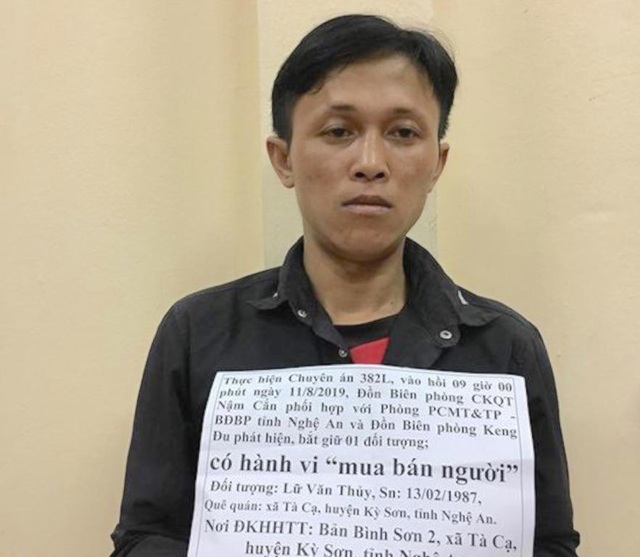 Thực hiện Chuyên án 382L, vào hồi 09 giờ 00
phút ngày 11/8/2019, Đồn Biên phòng CKQT
Nậm Cắn phối hợp với Phòng PCMT&TP -
BĐBP tỉnh Nghệ An và Đồn Biên phòng Keng
Du phát hiện, bắt giữ 01 đối tượng;
có hành vi “mua bán người”
Đối tượng: Lữ Văn Thủy, Sn: 13/02/1987,
Quê quán: xã Tà Cạ, huyện Kỳ Sơn, tỉnh Nghệ An.
Nơi ĐKHHTT: Bản Bình Sơn 2, xã Tà Cạ,
huyện Kỳ Sơn, tỉnh